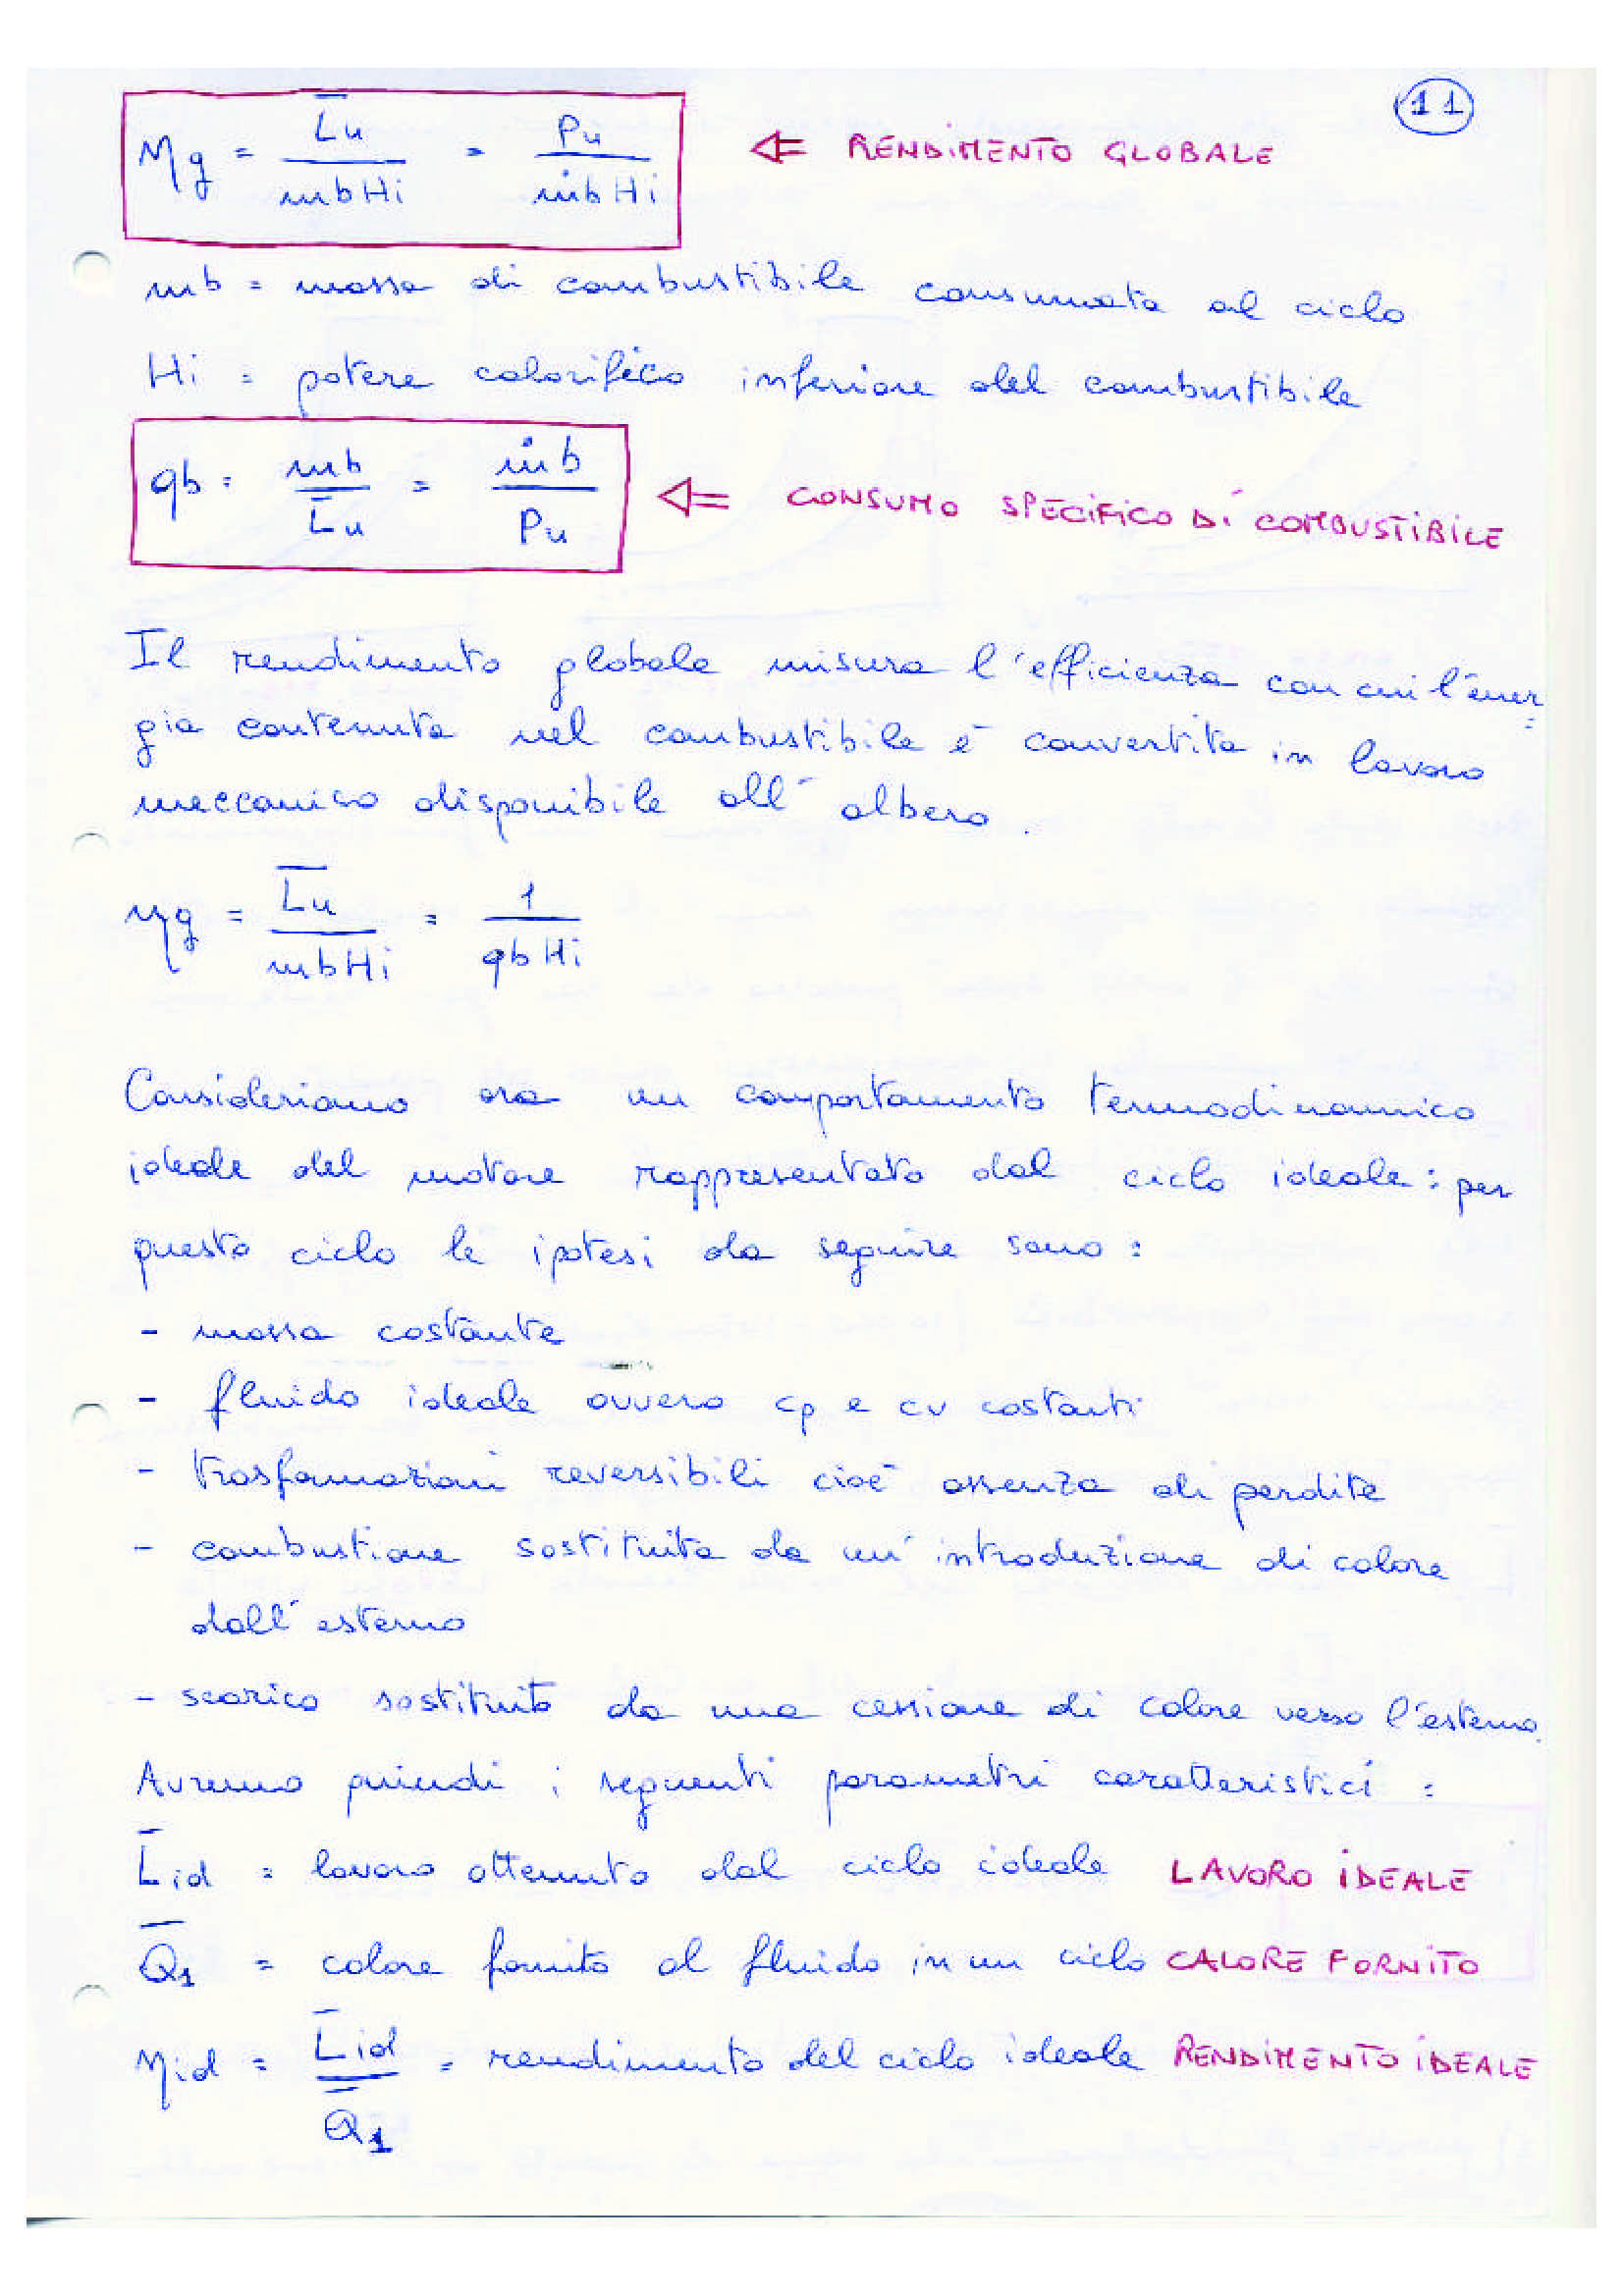 11
ηg = L̅u / mbHi = Pu / ṁbHi ⇐ RENDIMENTO GLOBALE
mb = massa di combustibile consumata al ciclo
Hi = potere calorifico inferiore del combustibile
qb = mb / L̅u = ṁb / Pu ⇐ CONSUMO SPECIFICO DI COMBUSTIBILE
Il rendimento globale misura l'efficienza con cui l'ener=
gia contenuta nel combustibile è convertita in lavoro
meccanico disponibile all'albero.
ηg = L̅u / mbHi = 1 / qbHi
Consideriamo ora un comportamento termodinamico
ideale del motore rappresentato dal ciclo ideale: per
questo ciclo le ipotesi da seguire sono:
- massa costante
- fluido ideale ovvero cp e cv costanti
- trasformazioni reversibili cioè assenza di perdite
- combustione sostituita da un'introduzione di calore
dall'esterno
- scarico sostituito da una cessione di calore verso l'esterno.
Avremo quindi i seguenti parametri caratteristici:
L̅id = lavoro ottenuto dal ciclo ideale LAVORO IDEALE
Q̅1 = calore fornito al fluido in un ciclo CALORE FORNITO
ηid = L̅id / Q̅1 = rendimento del ciclo ideale RENDIMENTO IDEALE